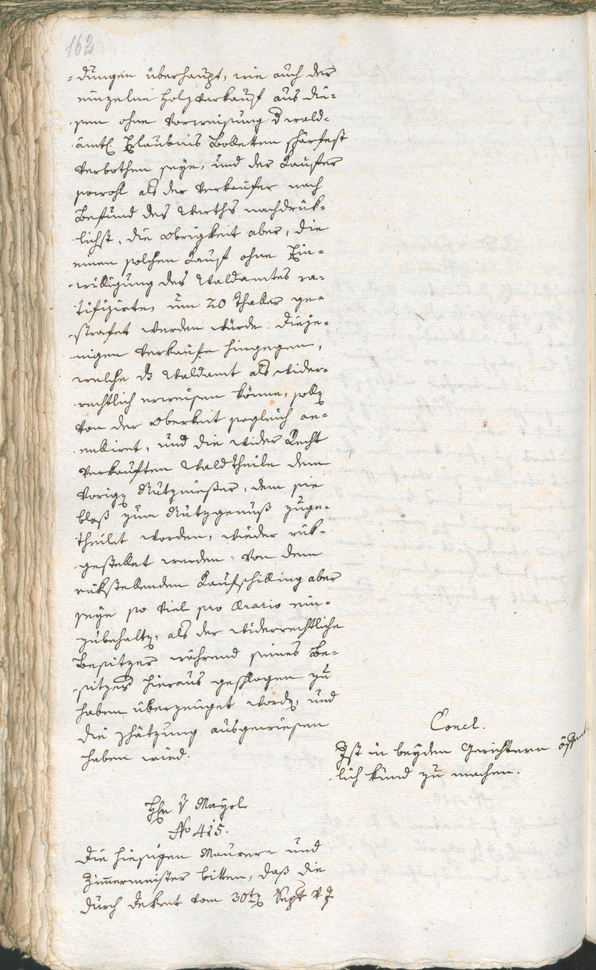 162
-dungen überhaupt, wie auch der
einzelne Holzverkauf aus die-
sem ohne Vorweisung d wald-
ämtl Erlaubnis Bolleten schärfest
verbothen seye, und der Kaufer
sowohl als der Verkaufer nach
Befund des Werths nachdrük-
lichst, die Obrigkeit aber, die
einen solchen Kauf ohne Ein-
willigung des Waldamtes ra-
tifizirte, um 20 Thaler ge-
strafet werden würde. Dieje-
nigen Verkaufe hingegen,
welche ds Waldamt als wider-
rechtlich erweisen könne, solln
von der Oberkeit sogleich an-
nulirt, und die wider Recht
verkauften Waldtheile dem
vorign Nutzniesser, dem sie
bloß zum Nutzgenuß zuge-
theilet worden, wieder rük-
gestellet werden. Von dem
rükstellenden Kaufschilling aber
seye so viel pro Ærario ein-
zubehaltn, als der widerrechtliche
Besitzer während seines Be-
sitzes hieraus geschlagen zu
haben überzeuget wordn, und
die Schätzung ausgewiesen
haben wird.
Concl.
Ist in beyden Gerichtern öffent-
lich kund zu machen.
Hr v Mayrl
No 415.
Die hiesigen Maurer- und
Zimmermeister bitten, daß die
durch Dekret vom 30tn Sept v J